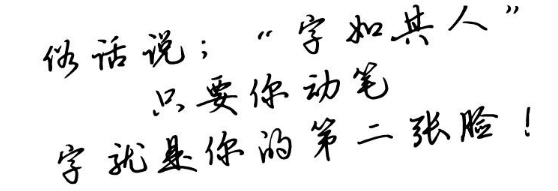 俗话说；“字如其人”
只要你动笔
字就是你的第二张脸！